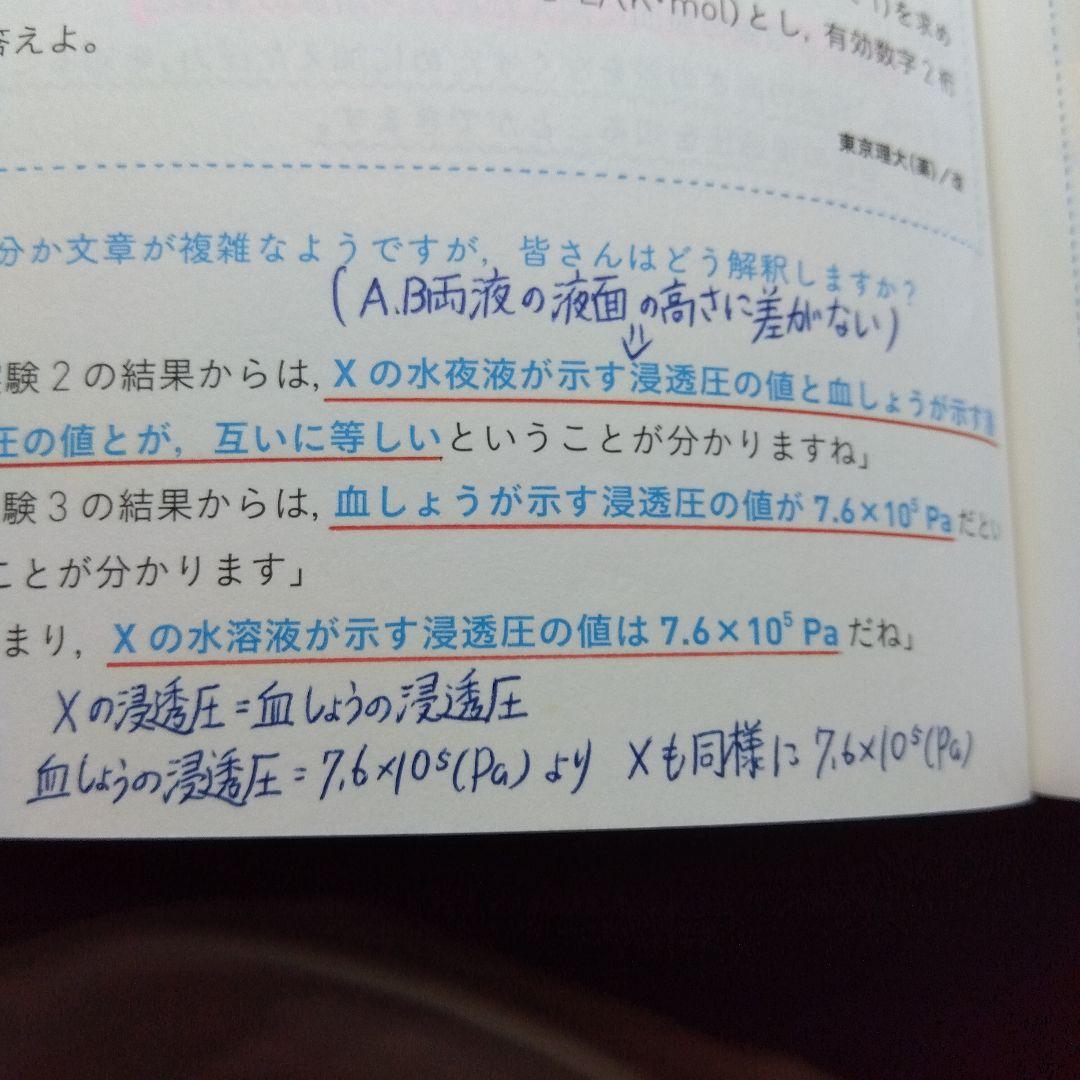 L/(K・mol)とし, 有効数字2桁
)を求め
答えよ。
東京理大(薬)/改
分か文章が複雑なようですが, 皆さんはどう解釈しますか?
(A.B両液の液面の高さに差がない)
⇓
験2の結果からは, Xの水夜液が示す浸透圧の値と血しょうが示す浸
圧の値とが, 互いに等しいということが分かりますね」
験3の結果からは, 血しょうが示す浸透圧の値が7.6×10⁵ Paだとい
ことが分かります」
まり, Xの水溶液が示す浸透圧の値は7.6×10⁵ Paだね」
Xの浸透圧=血しょうの浸透圧
血しょうの浸透圧=7.6×10⁵(Pa)より Xも同様に7.6×10⁵(Pa)